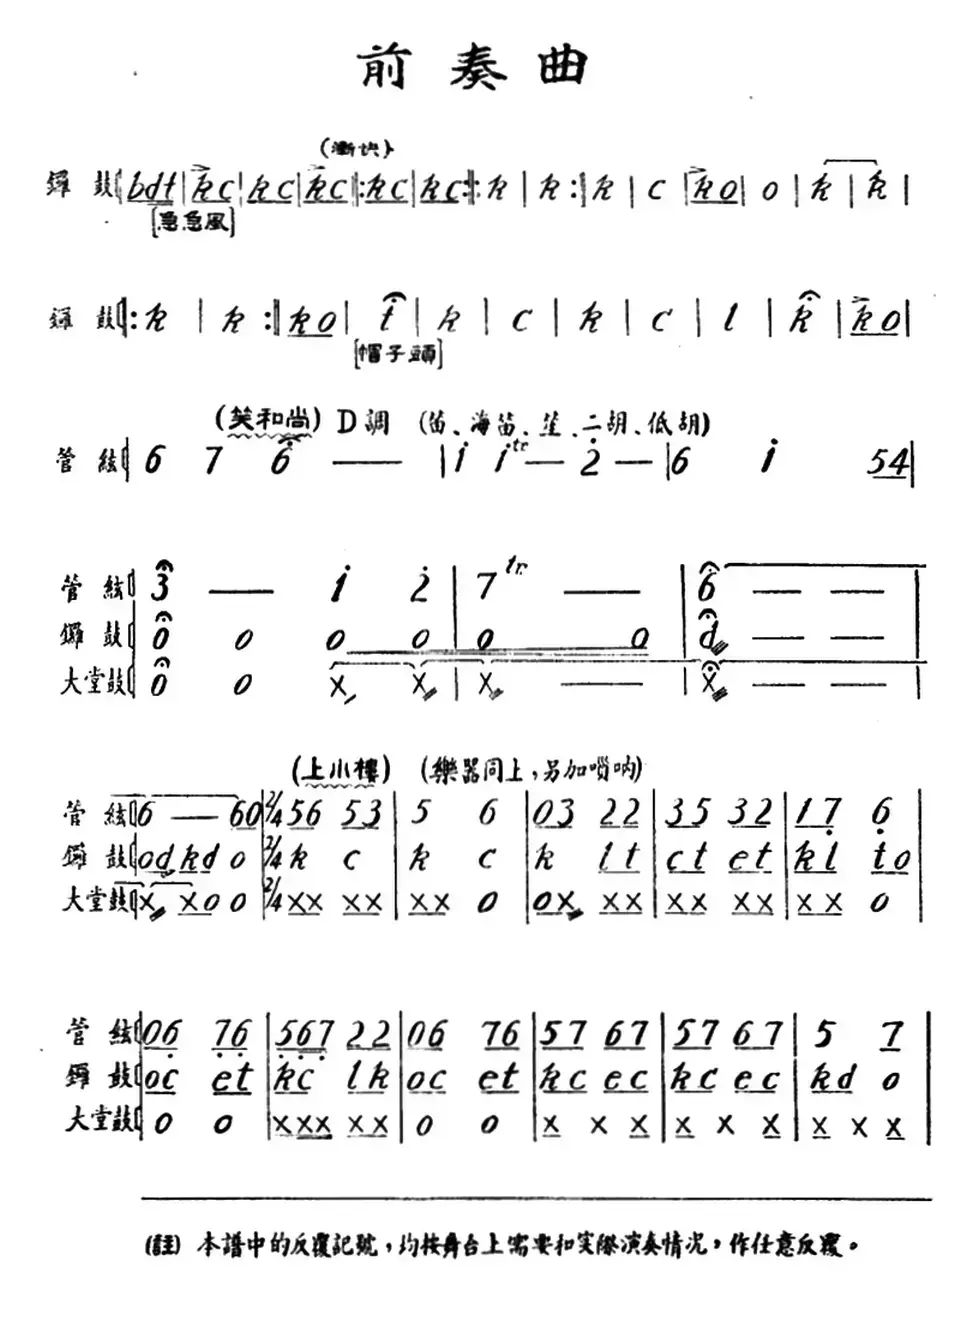 前奏曲
(漸快)
鑼鼓 bdt | kc | kc | kc |: kc | kc :|: k | k :| k | c | ko | o | k | k |
[急急風]
鑼鼓 |: k | k :| ko | t | k | c | k | c | l | k | ko |
[帽子頭]
(笑和尚) D調 (笛、海笛、笙、二胡、低胡)
管絃 6 7 6 — | i i tr — 2 — | 6 i 54 |
管絃 3 — i 2 | 7 tr — | 6 — —
鑼鼓 0 0 0 0 | 0 0 | d — —
大堂鼓 0 0 X X | X — | X — —
(上小樓) (樂器同上,另加嗩吶)
管絃 6 — 60 | 2/4 56 53 | 5 6 | 03 22 | 35 32 | 17 6 |
鑼鼓 od kd o | 2/4 k c | k c | k lt | ct et | kl to |
大堂鼓 X X0 0 | 2/4 XX XX | XX 0 | 0X XX | XX XX | XX 0 |
管絃 06 76 | 567 22 | 06 76 | 57 67 | 57 67 | 5 7 |
鑼鼓 oc et | kc lk | oc et | kc ec | kc ec | kd o |
大堂鼓 0 0 | XXX XX | 0 0 | X X X | X X X | X X X |
(註) 本譜中的反覆記號,均按舞台上需要和实際演奏情况,作任意反覆。